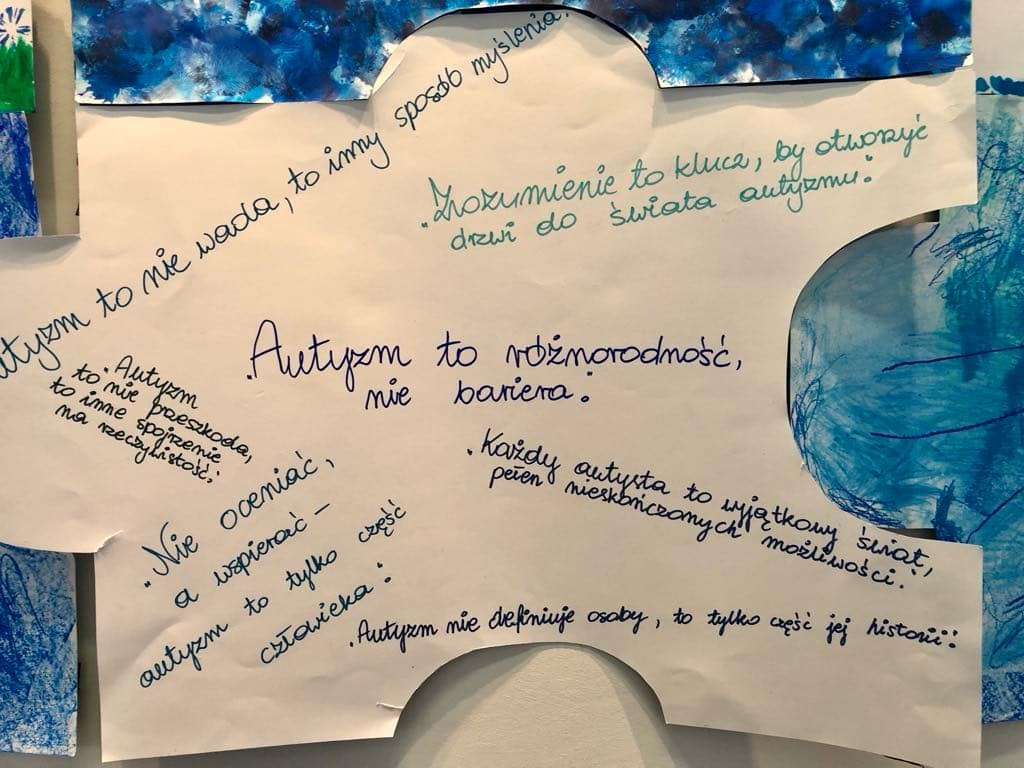 Autyzm to nie wada, to inny sposób myślenia.
"Zrozumienie to klucz, by otworzyć
drzwi do świata autyzmu."
"Autyzm to różnorodność,
nie bariera."
"Autyzm
to nie przeszkoda,
to inne spojrzenie
na rzeczywistość."
"Każdy autysta to wyjątkowy świat,
pełen nieskończonych możliwości."
"Nie oceniać,
a wspierać –
autyzm to tylko część
człowieka."
"Autyzm nie definiuje osoby, to tylko część jej historii."